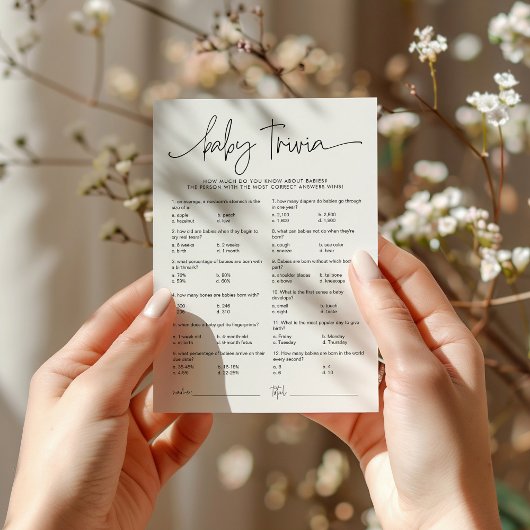 baby trivia
HOW MUCH DO YOU KNOW ABOUT BABIES?
THE PERSON WITH THE MOST CORRECT ANSWERS WINS!
1. on average, a newborn's stomach is the
size of a:
a. apple b. peach
c. hazelnut
2. how old are babies when they begin to
cry real tears?
a. 6 weeks b. 2 weeks
c. birth d. 1 month
3. what percentage of babies are born with
a birthmark?
a. 70% b. 80%
c. 50% d. 60%
4. how many bones are babies born with?
d. 310
5. when does a baby get its fingerprints?
c. birth
6. what percentage of babies arrive on their
due date?
7. how many diapers do babies go through
in one year?
a. 2,100 b. 2,500
c. 1,500 d. 1,900
8. what can babies not do when they're
born?
a. cough b. see color
c. sneeze d. hear
9. Babies are born without which body
part?
a. shoulder blades b. tailbone
c. elbows d. kneecaps
10. What is the first sense a baby
develops?
a. smell b. touch
c. sight d. taste
11. What is the most popular day to give
birth?
a. Friday b. Monday
c. Tuesday d. Thursday
12. How many babies are born in the world
every second?
a. 3 b. 4
c. 6 d. 10
name:
total: